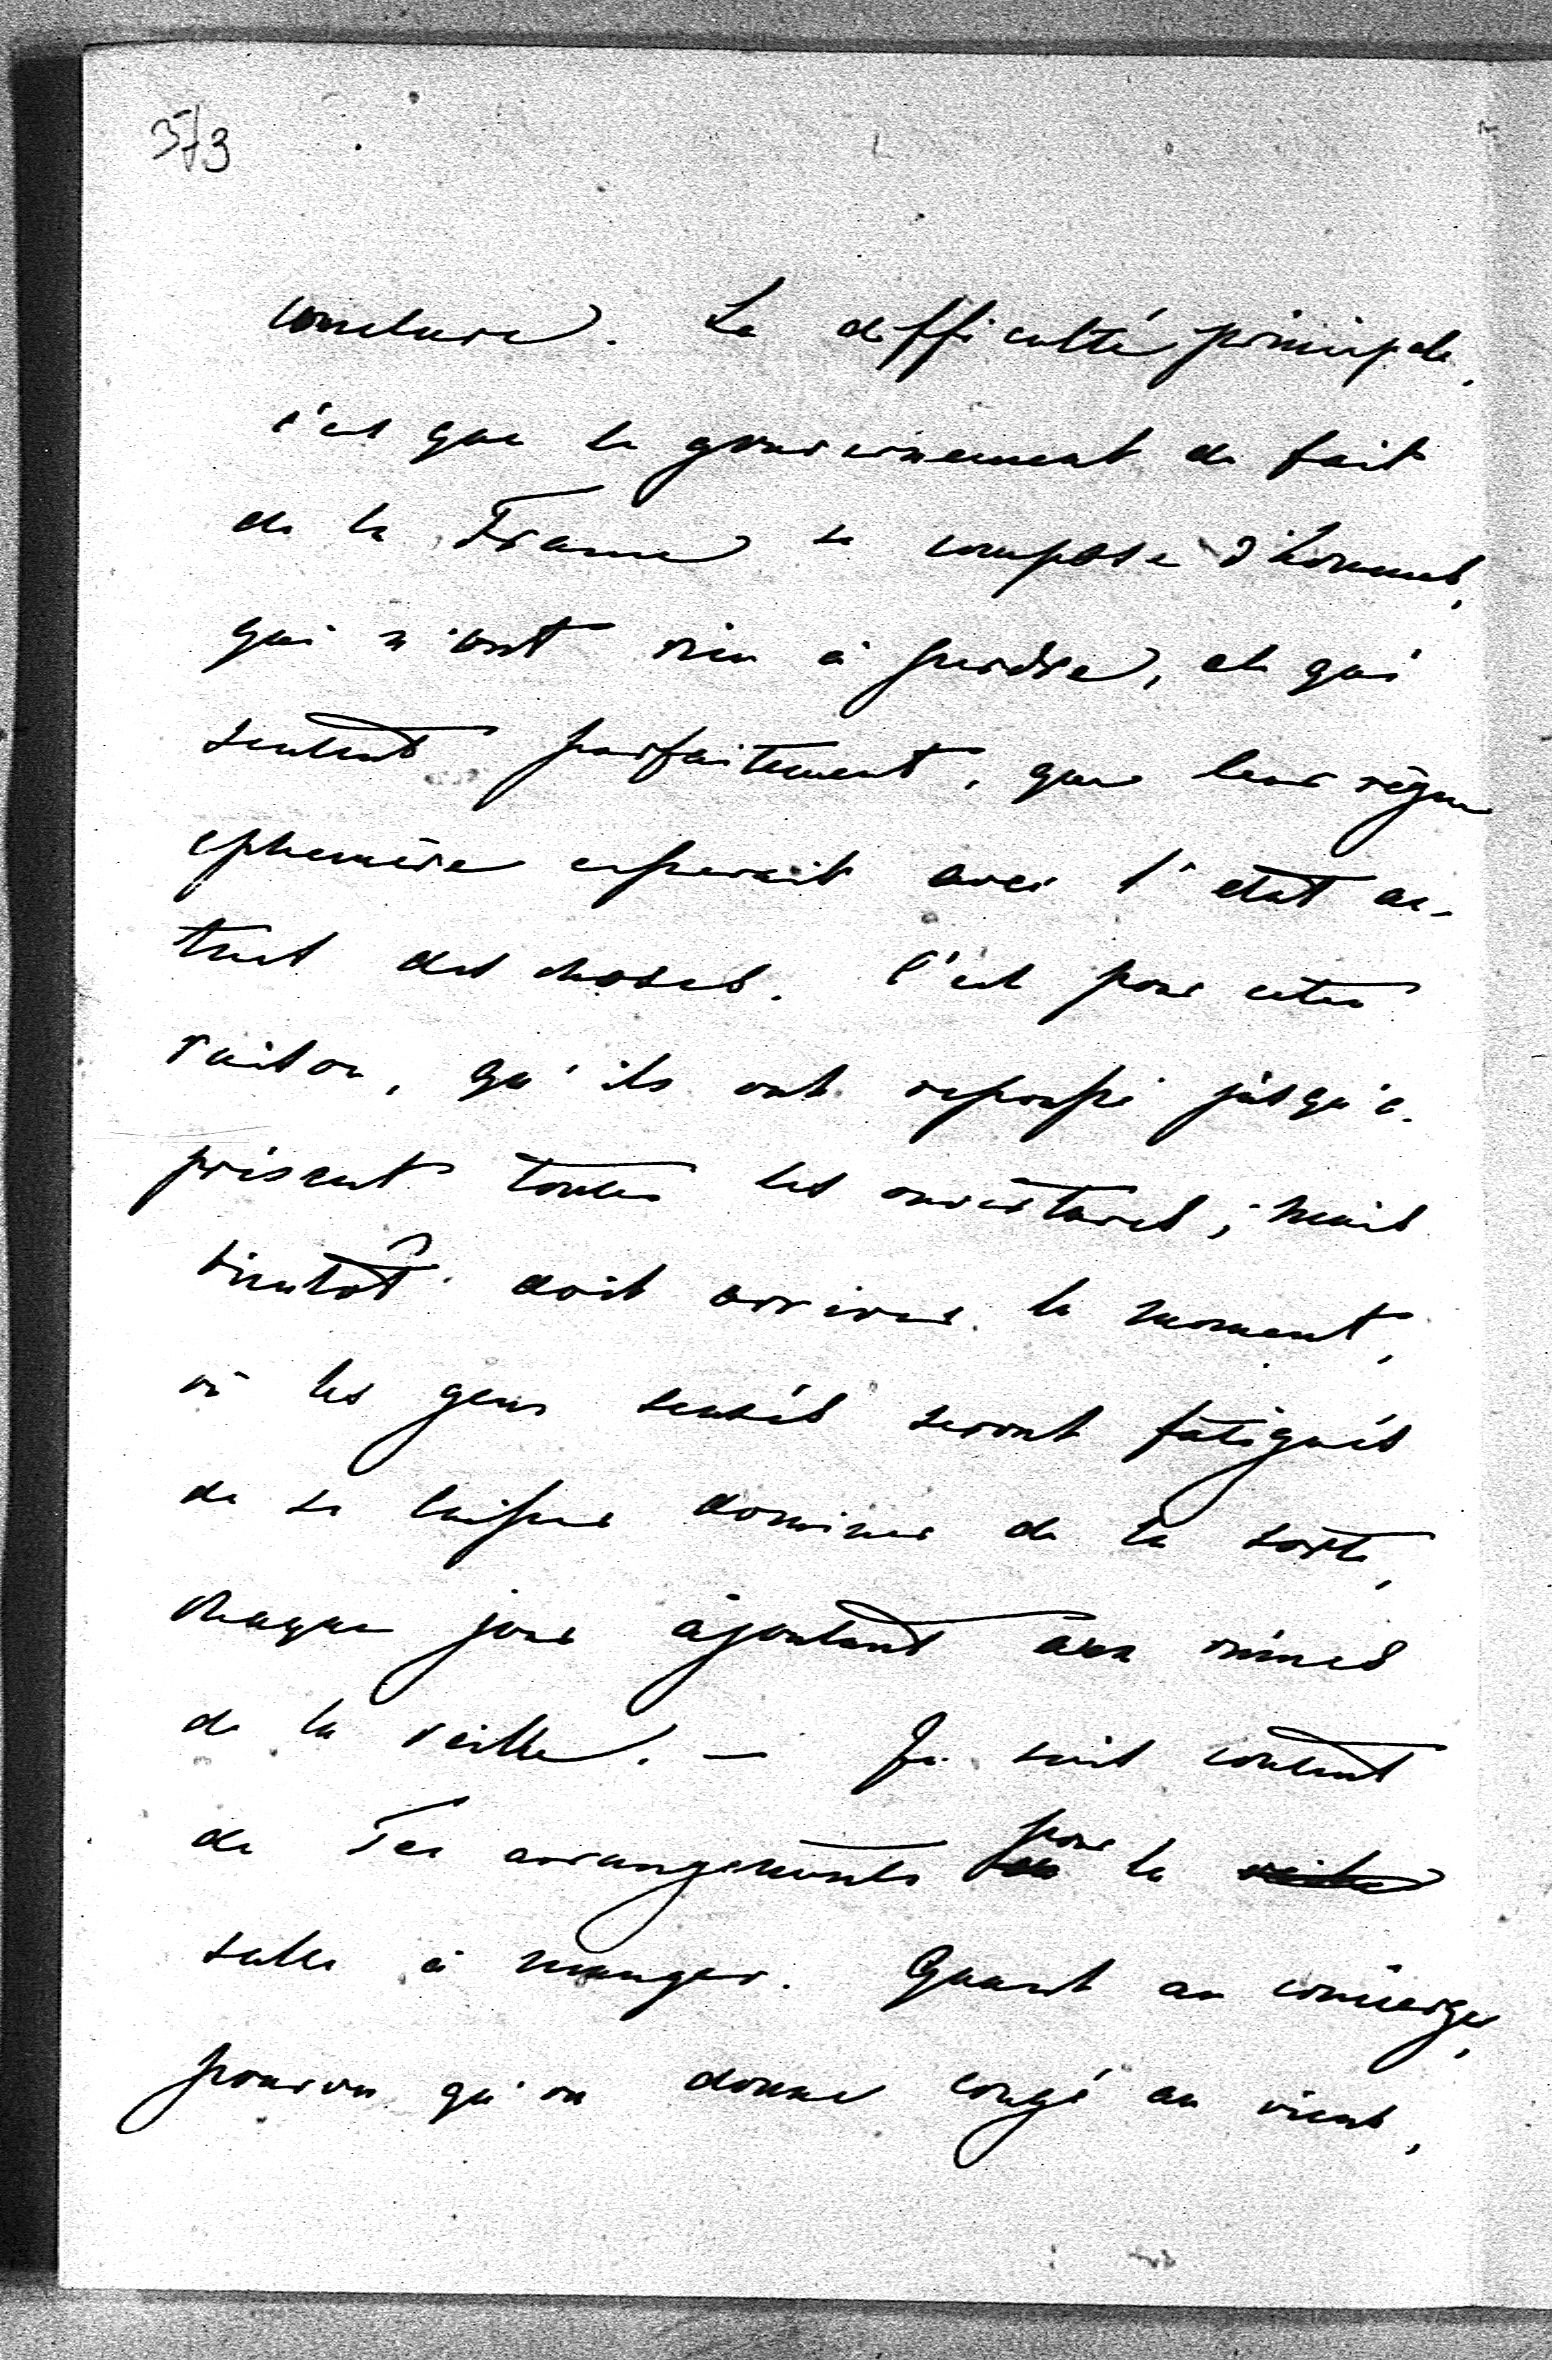 573
conclure. La difficulté principale,
c'est que le gouvernement de fait
de la France se compose d'hommes,
qui n'ont rien à perdre, et qui
sentent parfaitement, que leur règne
ephemère cesserait avec l'etat ac-
tuel des choses. C'est pour cette
raison, qu'ils ont repoussé jusqu'à
présent toutes les ouvertures; mais
bientôt doit arriver le moment,
où les gens sensés seront fatigués
de se laisser dominer de la sorte,
chaque jour ajoutant aux ruines
de la veille. — Je suis content
de Tes arrangements pour la
salle à manger. Quant au concierge,
pourvu qu'on donne congé au vieux,